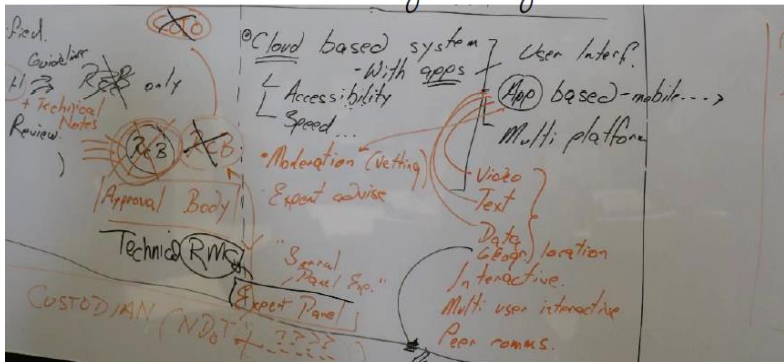 Guideline
only
+ Technical
Notes
Review
RCB
RCB
Approval Body
Technical RMC
CUSTODIAN (NDoT + ????
Cloud based system
- With apps
Accessibility
Speed...
• Moderation (vetting)
Expert advise
Panel Exp."
Expert Panel
User Interf.
App based - mobile --->
Multi platform
Video
Text
Data
Geogr) location
Interactive.
Multi user interactive
Peer comms.